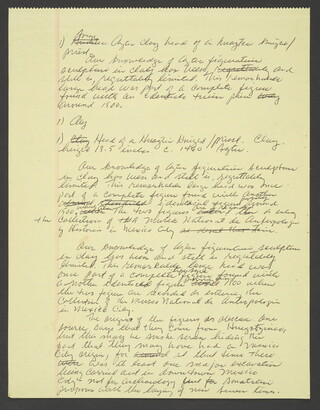 1) Aztec clay head of a Huaxtec Knight/
priest.
Our knowledge of Aztec figurative
sculpture in clay has been, and
still is, regrettably limited. This remarkable
large head was part of a complete figure
found with an identical
around 1500.
1) Clay
1) Head of a Huaxtec Knight/priest. Clay.
height 13.5 inches. c. 1480 Aztec.
Our knowledge of Aztec figurative sculpture
in clay has been and still is, regrettably
limited. This remarkable large head was once
part of a complete figure found with another
identical figure around
The two figures
the Collections of the Museo Nacional de Antropologia
y Historia in Mexico City
Our knowledge of Aztec figurative sculpture
in clay has been and still is regrettably
limited. This remarkable large head was
once part of a complete figure found with
another identical figure when
the two figures
Collection of the Museo National de Antropologia
in Mexico City.
The origin of the figures is obscure. One
source says that they come from
this may be smoke screen hiding the
fact that they may have had a Mexico
City origin, for at that time there
was at least one major excavation
being carried out in downtown Mexico
City not for archaeology but for
purposes with the laying of new sewer lines.